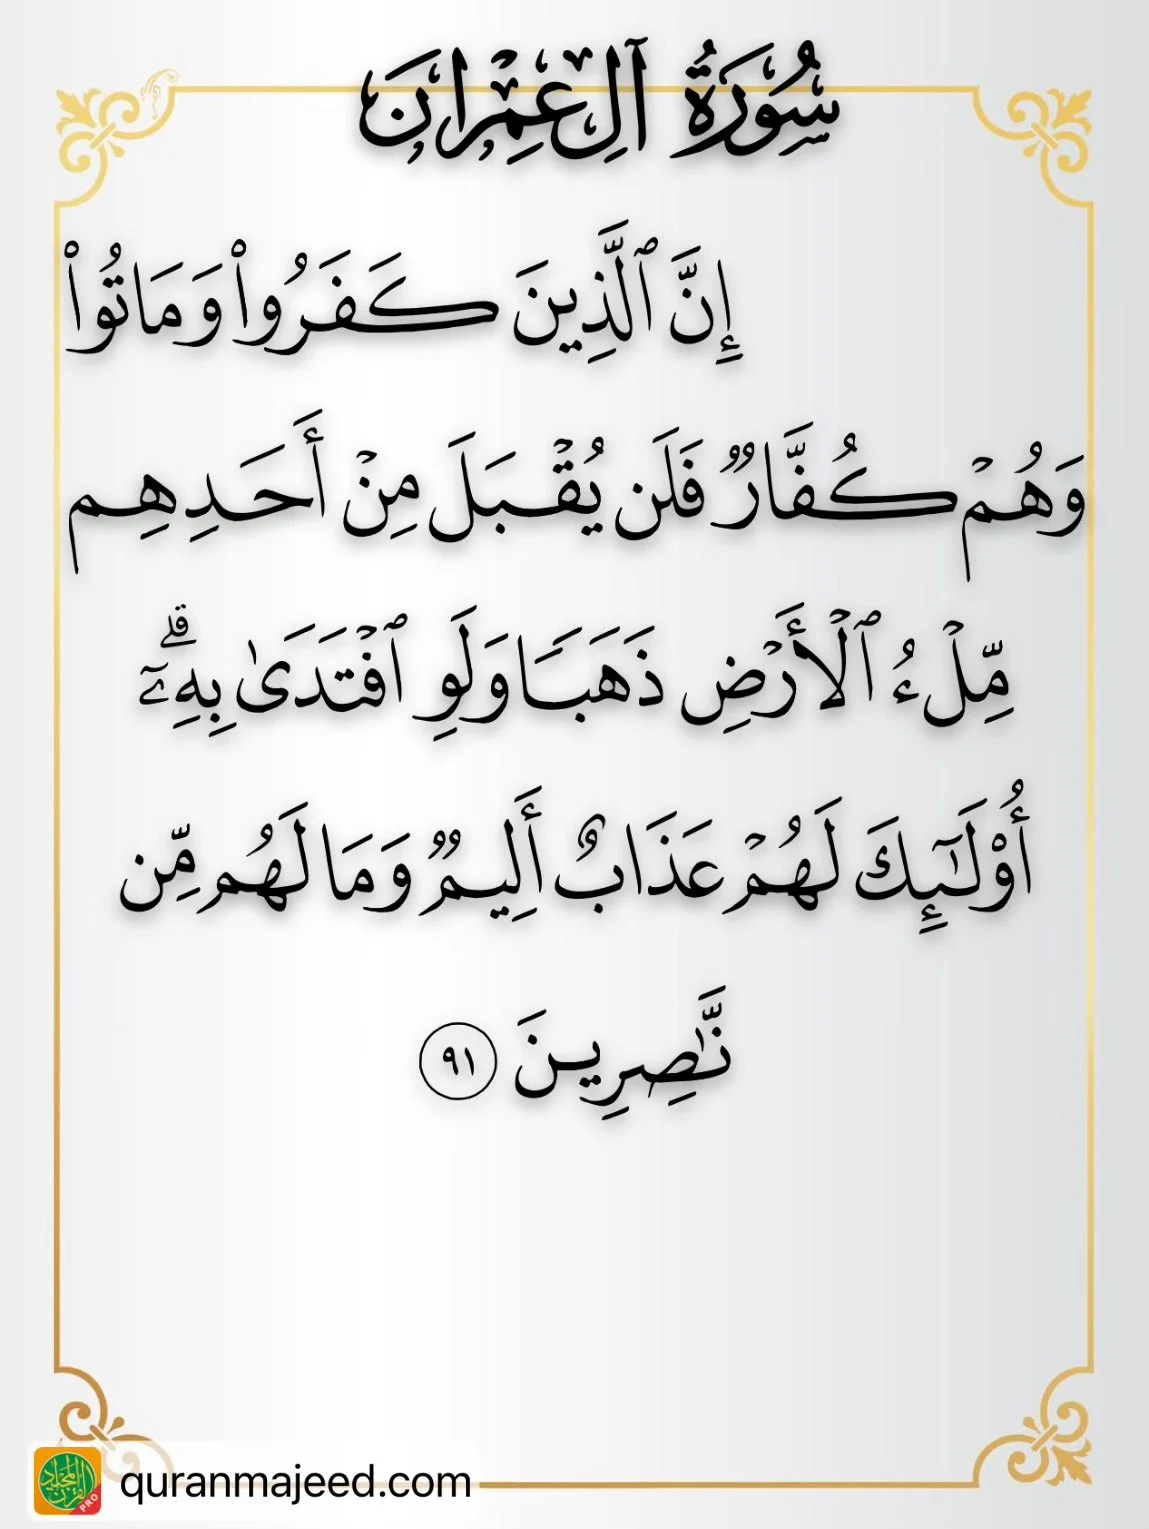 سُورَةُ آلِ عِمْرَانَ
إِنَّ ٱلَّذِينَ كَفَرُوا۟ وَمَاتُوا۟
وَهُمْ كُفَّارٌ فَلَن يُقْبَلَ مِنْ أَحَدِهِم
مِّلْءُ ٱلْأَرْضِ ذَهَبًا وَلَوِ ٱفْتَدَىٰ بِهِۦٓ ۗ
أُو۟لَـٰٓئِكَ لَهُمْ عَذَابٌ أَلِيمٌ وَمَا لَهُم مِّن
نَّـٰصِرِينَ ٩١
quranmajeed.com